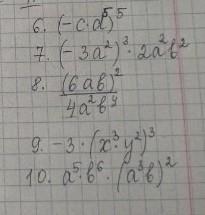 6. (-c·d⁵)⁵
7. (-3a²)³·2a²b²
8. (6ab)²
4a²b⁴
9. -3·(x³·y²)³
10. a⁵·b⁶·(a³b)²